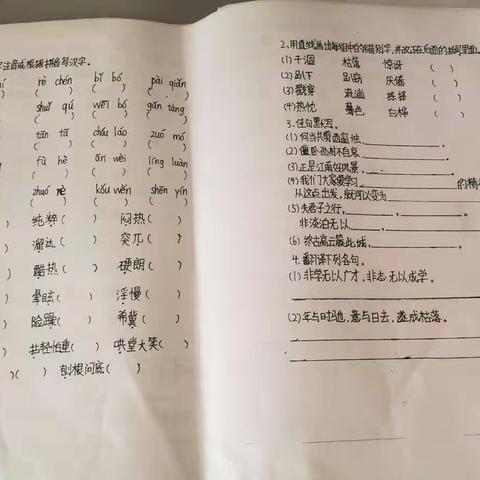 注音或根据拼音写汉字。
rè chén bǐ bó pài qiǎn
shuǐ qú wēi bó gǎn tàng
tān tā cháu láo zuó mó
fù hè ān wèi líng luàn
zhuó rè kǒu wěn shēn yín
纯粹( ) 闷热( )
溜达( ) 突兀( )
酷热( ) 硬朗( )
晕眩( ) 淫慢( )
脸躁( ) 希冀( )
拈轻怕重( ) 哄堂大笑( )
)( ) 刨根问底( )
2、用直线画出每组中的错别字,并改正在后面的括号里面。
(1)干涸 枯落 惊讶 ( )
(2)趴下 厌倦 ( )
(3) 拣择 ( )
(4) 暮色 白桦 ( )
3、佳句默写。
(1)何当共剪西窗烛,
(2)僵卧孤村不自哀,
(3)正是江南好风景,
(4)我们大家要学习 的精
从这点出发,就可以变为
(5)夫君子之行, , 。
非淡泊无以 , 。
(6)终古高云簇此城, 。
4.翻译下列各句。
(1)非学无以广才,非志无以成学。
(2)年与时驰,意与日去,遂成枯落。